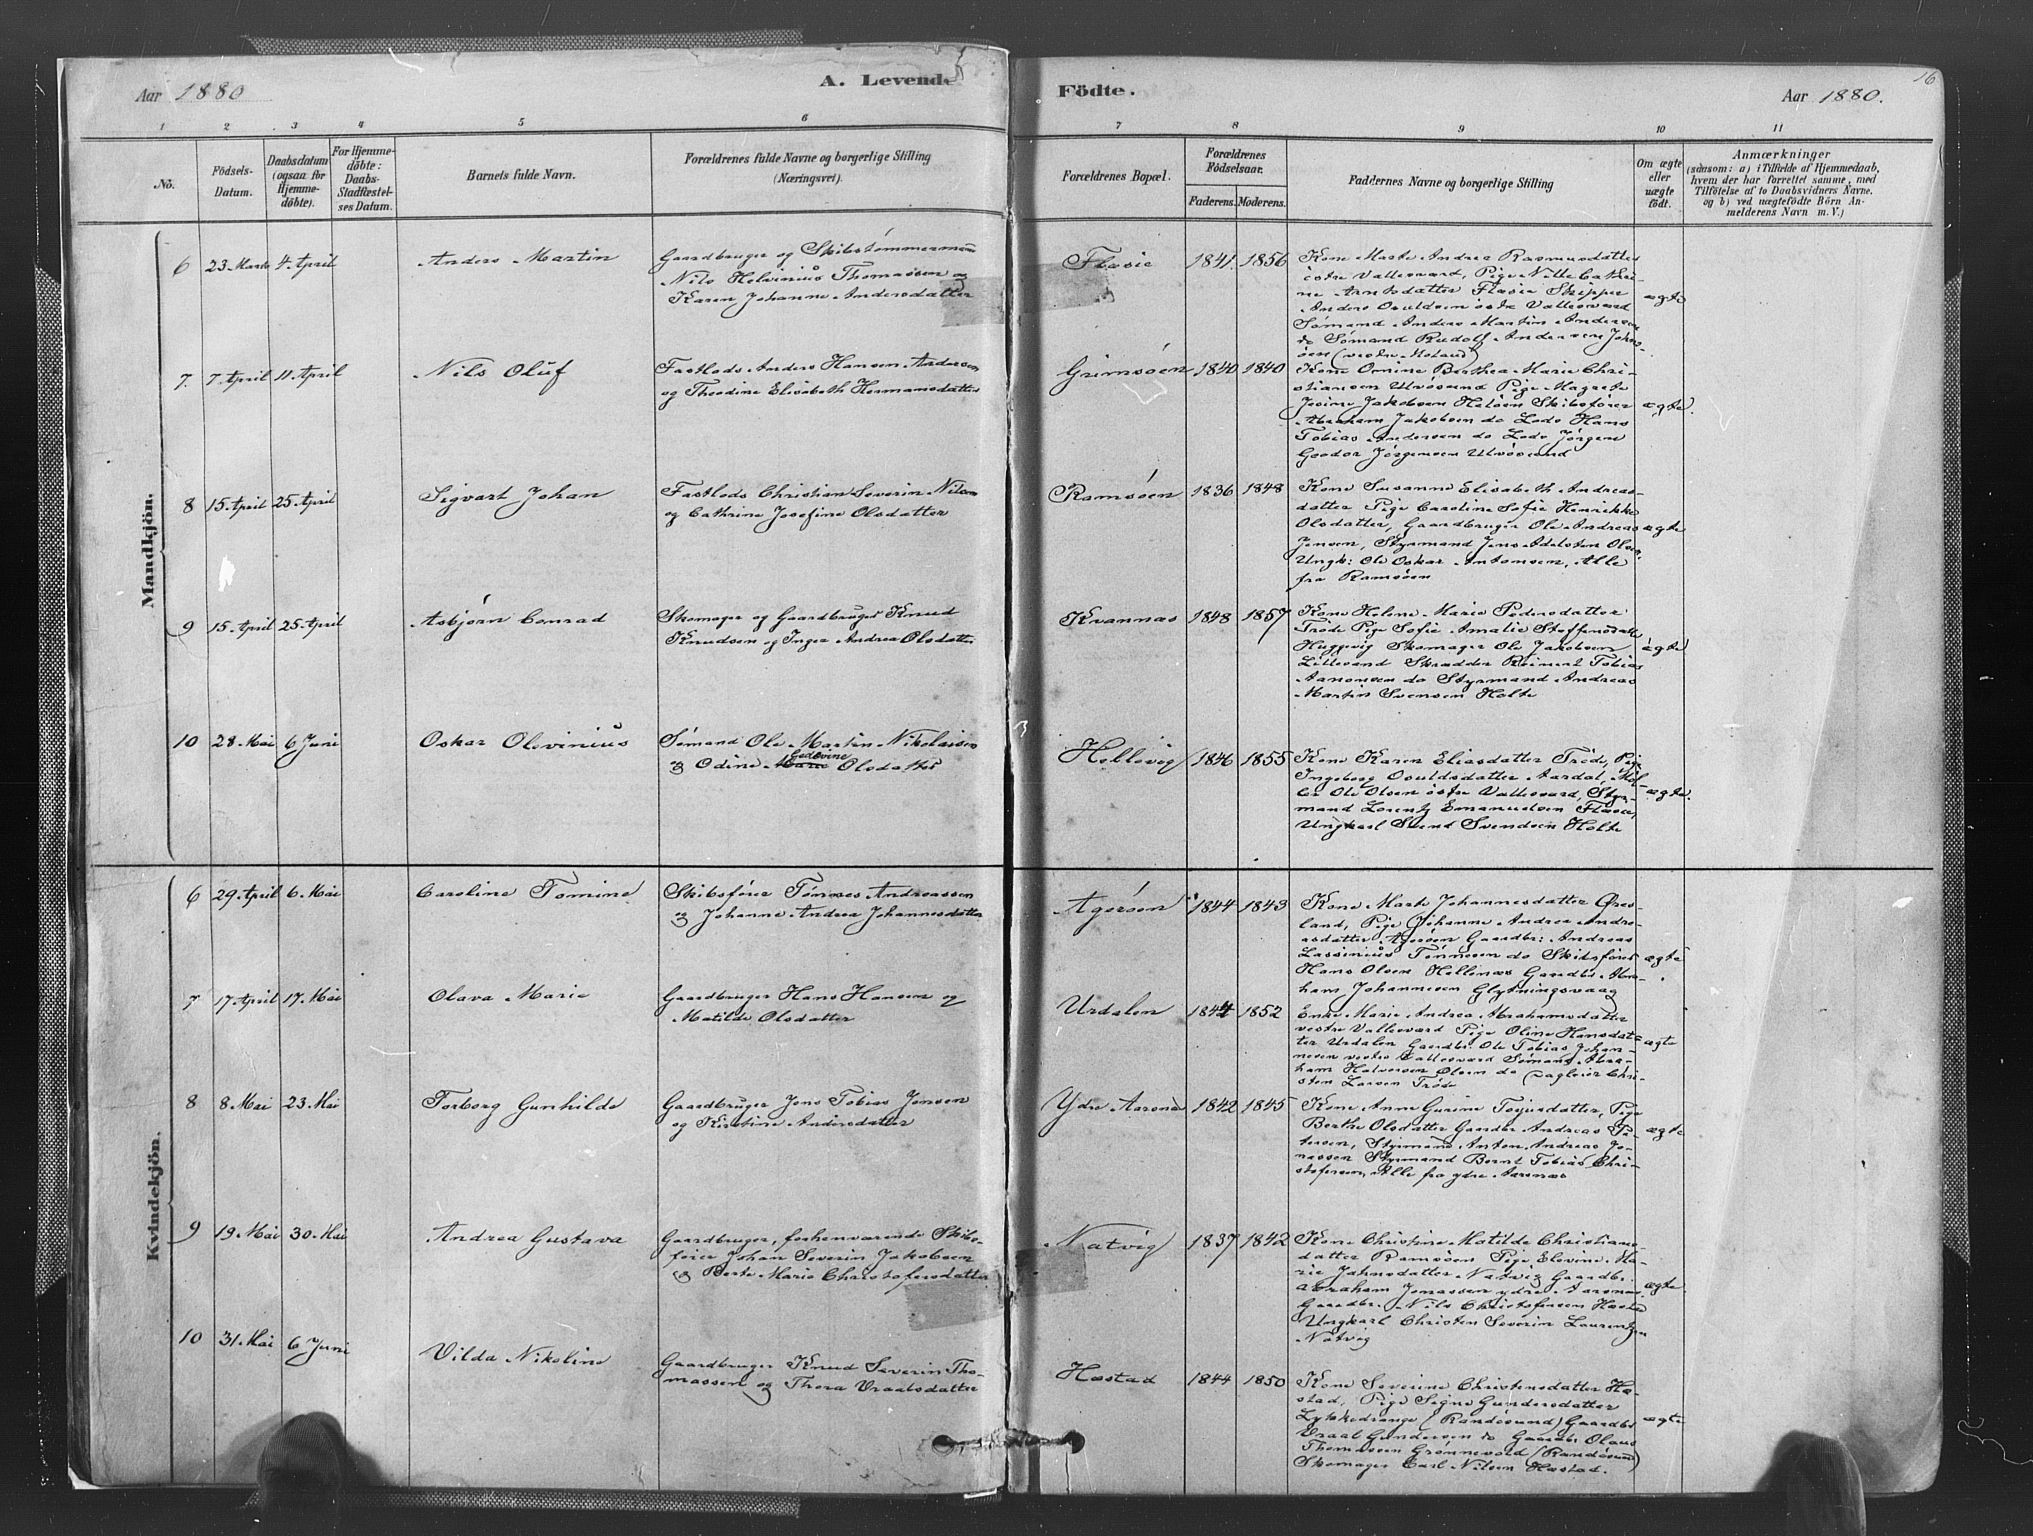 Aar 1880
A. Levende
Födte.
16
Aar 1880.
1 2 3 4 5 6 7 8 9 10 11
No.
Födsels-
Datum.
Daabsdatum
(ogsaa for
Hjemme-
döbte).
For Hjemme-
döbte:
Daabs-
Stadfæstel-
ses Datum.
Barnets fulde Navn.
Forældrenes fulde Navne og borgerlige Stilling
(Næringsvei).
Forældrenes Bopæl.
Forældrenes
Födselsaar.
Faderens. Moderens.
Faddernes Navne og borgerlige Stilling
Om ægte
eller
uægte
födt.
Anmærkninger
(saasom: a) i Tilfælde af Hjemmedaab,
hvem der har forrettet samme, med
Tilföielse af to Daabsvidners Navne,
og b) ved uægtefödte Börn An-
melderens Navn m. V.)
Mandkjön.
6 23 Marts 4 April
Anders Martin
Gaardbruger og Skibstømmermand
Nils Helvinius Thomassen og
Karen Johanne Andersdatter
Flæsie 1841 1856
Kone Marte Andrea Rasmusdatter
østre Vallesværd, Pige Nille Cathri-
ne Arntsdatter Flæsie Skipper
Anders Osuldsen østre Vallesværd
Sømand Anders Martin Andersen
do Sømand Rudolf Andersen Johns-
øen (vestre Moland)
ægte
7. 7 April 11 April
Nils Oluf
Fastlods Anders Hansen Andersen
og Theodine Elisabeth Hermansdatter
Grimsøen 1840 1840
Kone Omine Berthea Marie Chri-
stiansen Ulvøsund Pige Magrete
Josine Jakobsen Heløen Skibsfører
Abraham Jakobsen do Lods Hans
Tobias Andersen do Lods Jørgen
Jørgensen Ulvøsund
ægte
8 15 April 25 April
Sigvart Johan
Fastlods Christian Severin Nilsen
og Cathrine Josefine Olsdatter
Ramsøen 1836 1848
Kone Susanne Elisabeth Andreas-
datter Pige Caroline Sofie Henrikke
Olsdatter, Gaardbruger Ole Andreas
Jensen, Styrmand Jens Adelsten Olsen
Ungk: Ole Oskar Antonsen, Alle
fra Ramsøen
ægte
9 15 April 25 April
Asbjørn Conrad
Skomager og Gaardbruger Knud
Knudsen og Inger Andrea Olsdatter
Kvannes 1848 1857
Kone Helene Marie Pedersdatter
Trøde Pige Sofie Amalie Steffensdatt
Huggevig Skomager Ole Jakobsen
Lillesand Skrædder Reinert Tobias
Aanonsen do Styrmand Andreas
Martin Svensen Holte
ægte
10 28 Mai 6 Juni
Oskar Olevinius
Sømand Ole Martin Nikolaisen
og Odine Marie Olsdatter
Hellevig 1846 1855
Kone Karen Eliasdatter Trøde, Pige
Ingeborg Osuldsdatter Aardal, Møl-
ler Ole Olsen østre Vallesværd, Styr-
mand Lorentz Emanuelsen Flæsie,
Ungkarl Svend Svendsen Holte
ægte.
Kvindekjön.
6 29 April 6 Mai
Caroline Tomine
Skibsfører Tønnes Andreassen
og Johanne Andrea Johannesdatter
Agerøen 1844 1843
Kone Marte Johannesdatter Øres-
land, Pige Johanne Andrea Andre-
asdatter Agerøen Gaardbr: Andreas
Lassenius Tønnesen do Skibsfører
Hans Olsen Hellenæs Gaardbr Abra-
ham Johannesen Glytningsvaag
ægte
7 17 April 17 Mai
Olava Marie
Gaardbruger Hans Hansen og
Matilde Olsdatter
Urdalen 1844 1852
Enke Marie Andrea Abrahamsdatter
vestre Vallesværd Pige Oline Hansdat-
ter Urdalen Gaardbr Ole Tobias Johan-
nesen vestre Vallesværd Sømand Abra-
ham Halvorsen Olsen do Dagleier Chri-
sten Larsen Trøde
ægte
8 8 Mai 23 Mai
Torborg Gunhilde
Gaardbruger Jens Tobias Jensen
og Kirstine Andersdatter
Ydre Aarsnæs 1842 1845
Kone Anne Gurine Tojusdatter, Pige
Berthe Olsdatter Gaardbr Andreas Pe-
tersen, Styrmand Anton Andreas Jo-
nassen Styrmand Bernt Tobias Chri-
stofersen, Alle fra ydre Aarsnæs
ægte
9 19 Mai 30 Mai
Andrea Gustava
Gaardbruger, forhenværende Skibs-
fører Johan Severin Jakobsen
og Berte Marie Christofersdatter
Natvig 1837 1842
Kone Christine Matilde Christians-
datter Ramsøen Pige Elevine Ma-
rie Jahnsdatter Natvig Gaardbr.
Abraham Jonassen ydre Aarsnæs
Gaardbr. Nils Christofersen Hæstad
Ungkarl Christen Severin Laurentzen
Natvig
ægte.
10 31 Mai 6 Juni
Vilda Nikoline
Gaardbruger Knud Severin Tho-
massen og Thora Vraalsdatter
Hæstad 1844 1850
Kone Severine Christensdatter Hæ-
stad, Pige Signe Gundersdatter
Lykkedrange (Randøsund) Gaardbr
Vraal Gundersen do Gaardbr Olaus
Thomassen Grønnevold (Randøsund)
Skomager Carl Nilsen Hæstad.
ægte